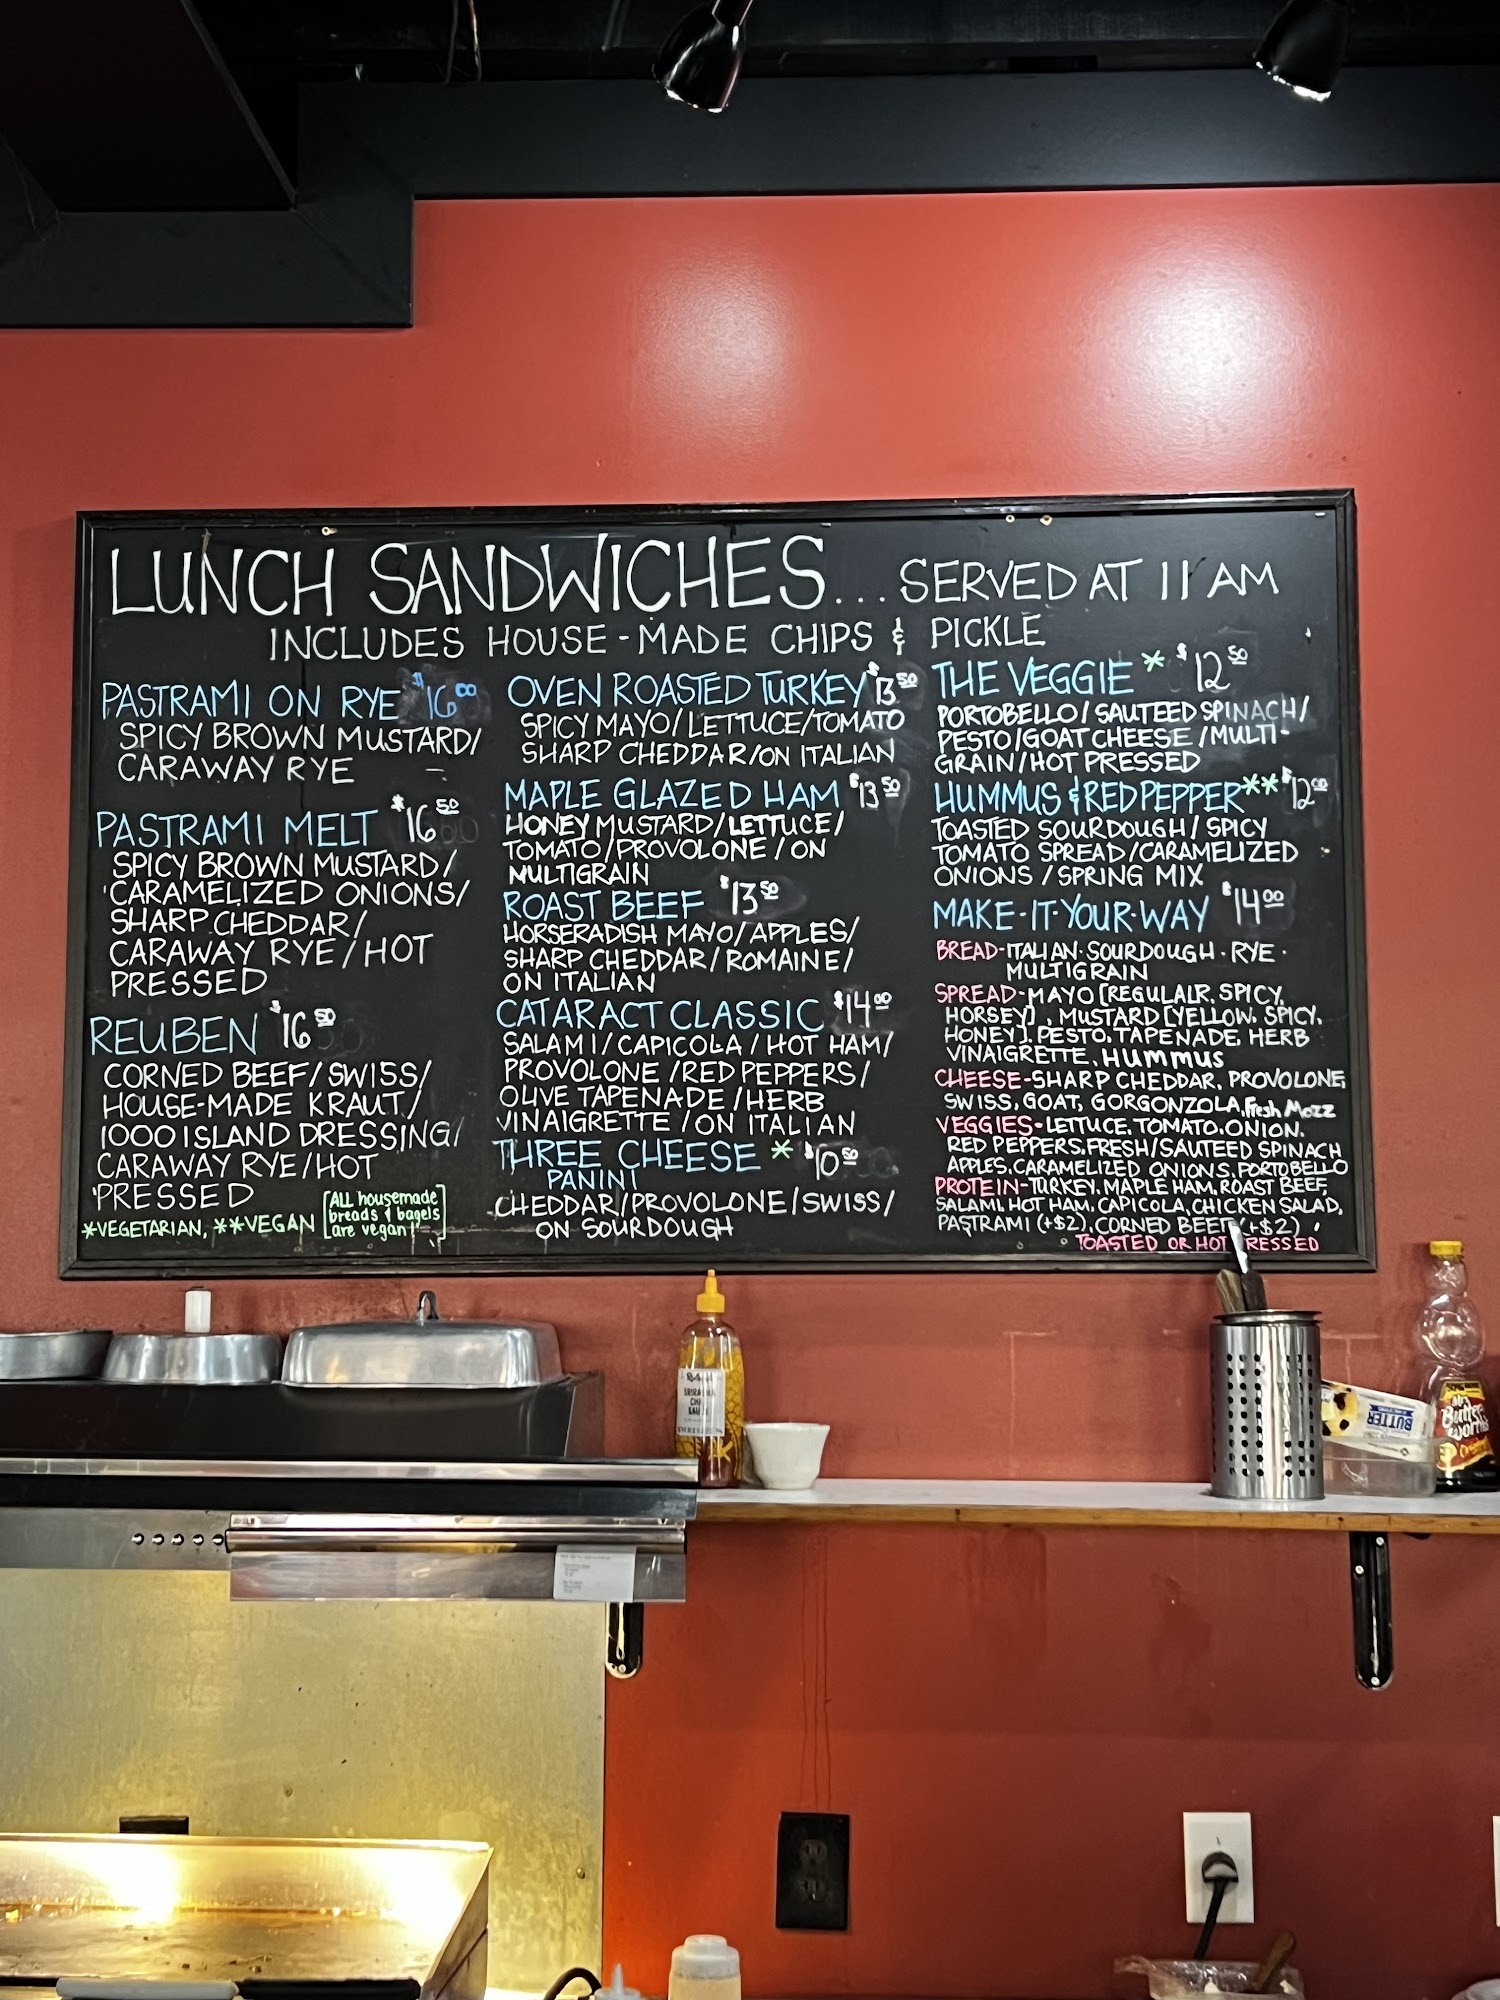 LUNCH SANDWICHES... SERVED AT 11 AM
INCLUDES HOUSE-MADE CHIPS & PICKLE
PASTRAMI ON RYE $16.00
SPICY BROWN MUSTARD/
CARAWAY RYE
PASTRAMI MELT $16.50
SPICY BROWN MUSTARD/
CARAMELIZED ONIONS/
SHARP CHEDDAR/
CARAWAY RYE/HOT
PRESSED
REUBEN $16.50
CORNED BEEF/SWISS/
HOUSE-MADE KRAUT/
1000 ISLAND DRESSING/
CARAWAY RYE/HOT
PRESSED
*VEGETARIAN, **VEGAN
[ALL housemade
breads & bagels
are vegan!]
OVEN ROASTED TURKEY $13.50
SPICY MAYO/LETTUCE/TOMATO
SHARP CHEDDAR/ON ITALIAN
MAPLE GLAZED HAM $13.50
HONEY MUSTARD/LETTUCE/
TOMATO/PROVOLONE/ON
MULTIGRAIN
ROAST BEEF $13.50
HORSERADISH MAYO/APPLES/
SHARP CHEDDAR/ROMAINE/
ON ITALIAN
CATARACT CLASSIC $14.00
SALAMI/CAPICOLA/HOT HAM/
PROVOLONE/RED PEPPERS/
OLIVE TAPENADE/HERB
VINAIGRETTE/ON ITALIAN
THREE CHEESE * $10.50
PANINI
CHEDDAR/PROVOLONE/SWISS/
ON SOURDOUGH
THE VEGGIE * $12.50
PORTOBELLO/SAUTEED SPINACH/
PESTO/GOAT CHEESE/MULTI-
GRAIN/HOT PRESSED
HUMMUS & RED PEPPER** $12.00
TOASTED SOURDOUGH/SPICY
TOMATO SPREAD/CARAMELIZED
ONIONS/SPRING MIX
MAKE-IT-YOUR-WAY $14.00
BREAD-ITALIAN·SOURDOUGH·RYE·
MULTIGRAIN
SPREAD-MAYO [REGULALR, SPICY,
HORSEY], MUSTARD [YELLOW, SPICY,
HONEY], PESTO, TAPENADE, HERB
VINAIGRETTE, HUMMUS
CHEESE-SHARP CHEDDAR, PROVOLONE,
SWISS, GOAT, GORGONZOLA, Fresh Mozz
VEGGIES-LETTUCE, TOMATO, ONION,
RED PEPPERS, FRESH/SAUTEED SPINACH
APPLES, CARAMELIZED ONIONS, PORTOBELLO
PROTEIN-TURKEY, MAPLE HAM, ROAST BEEF,
SALAMI, HOT HAM, CAPICOLA, CHICKEN SALAD,
PASTRAMI (+$2), CORNED BEEF (+$2)
TOASTED OR HOT RESSED
BUTTER
Mrs
Butter
worth
Original